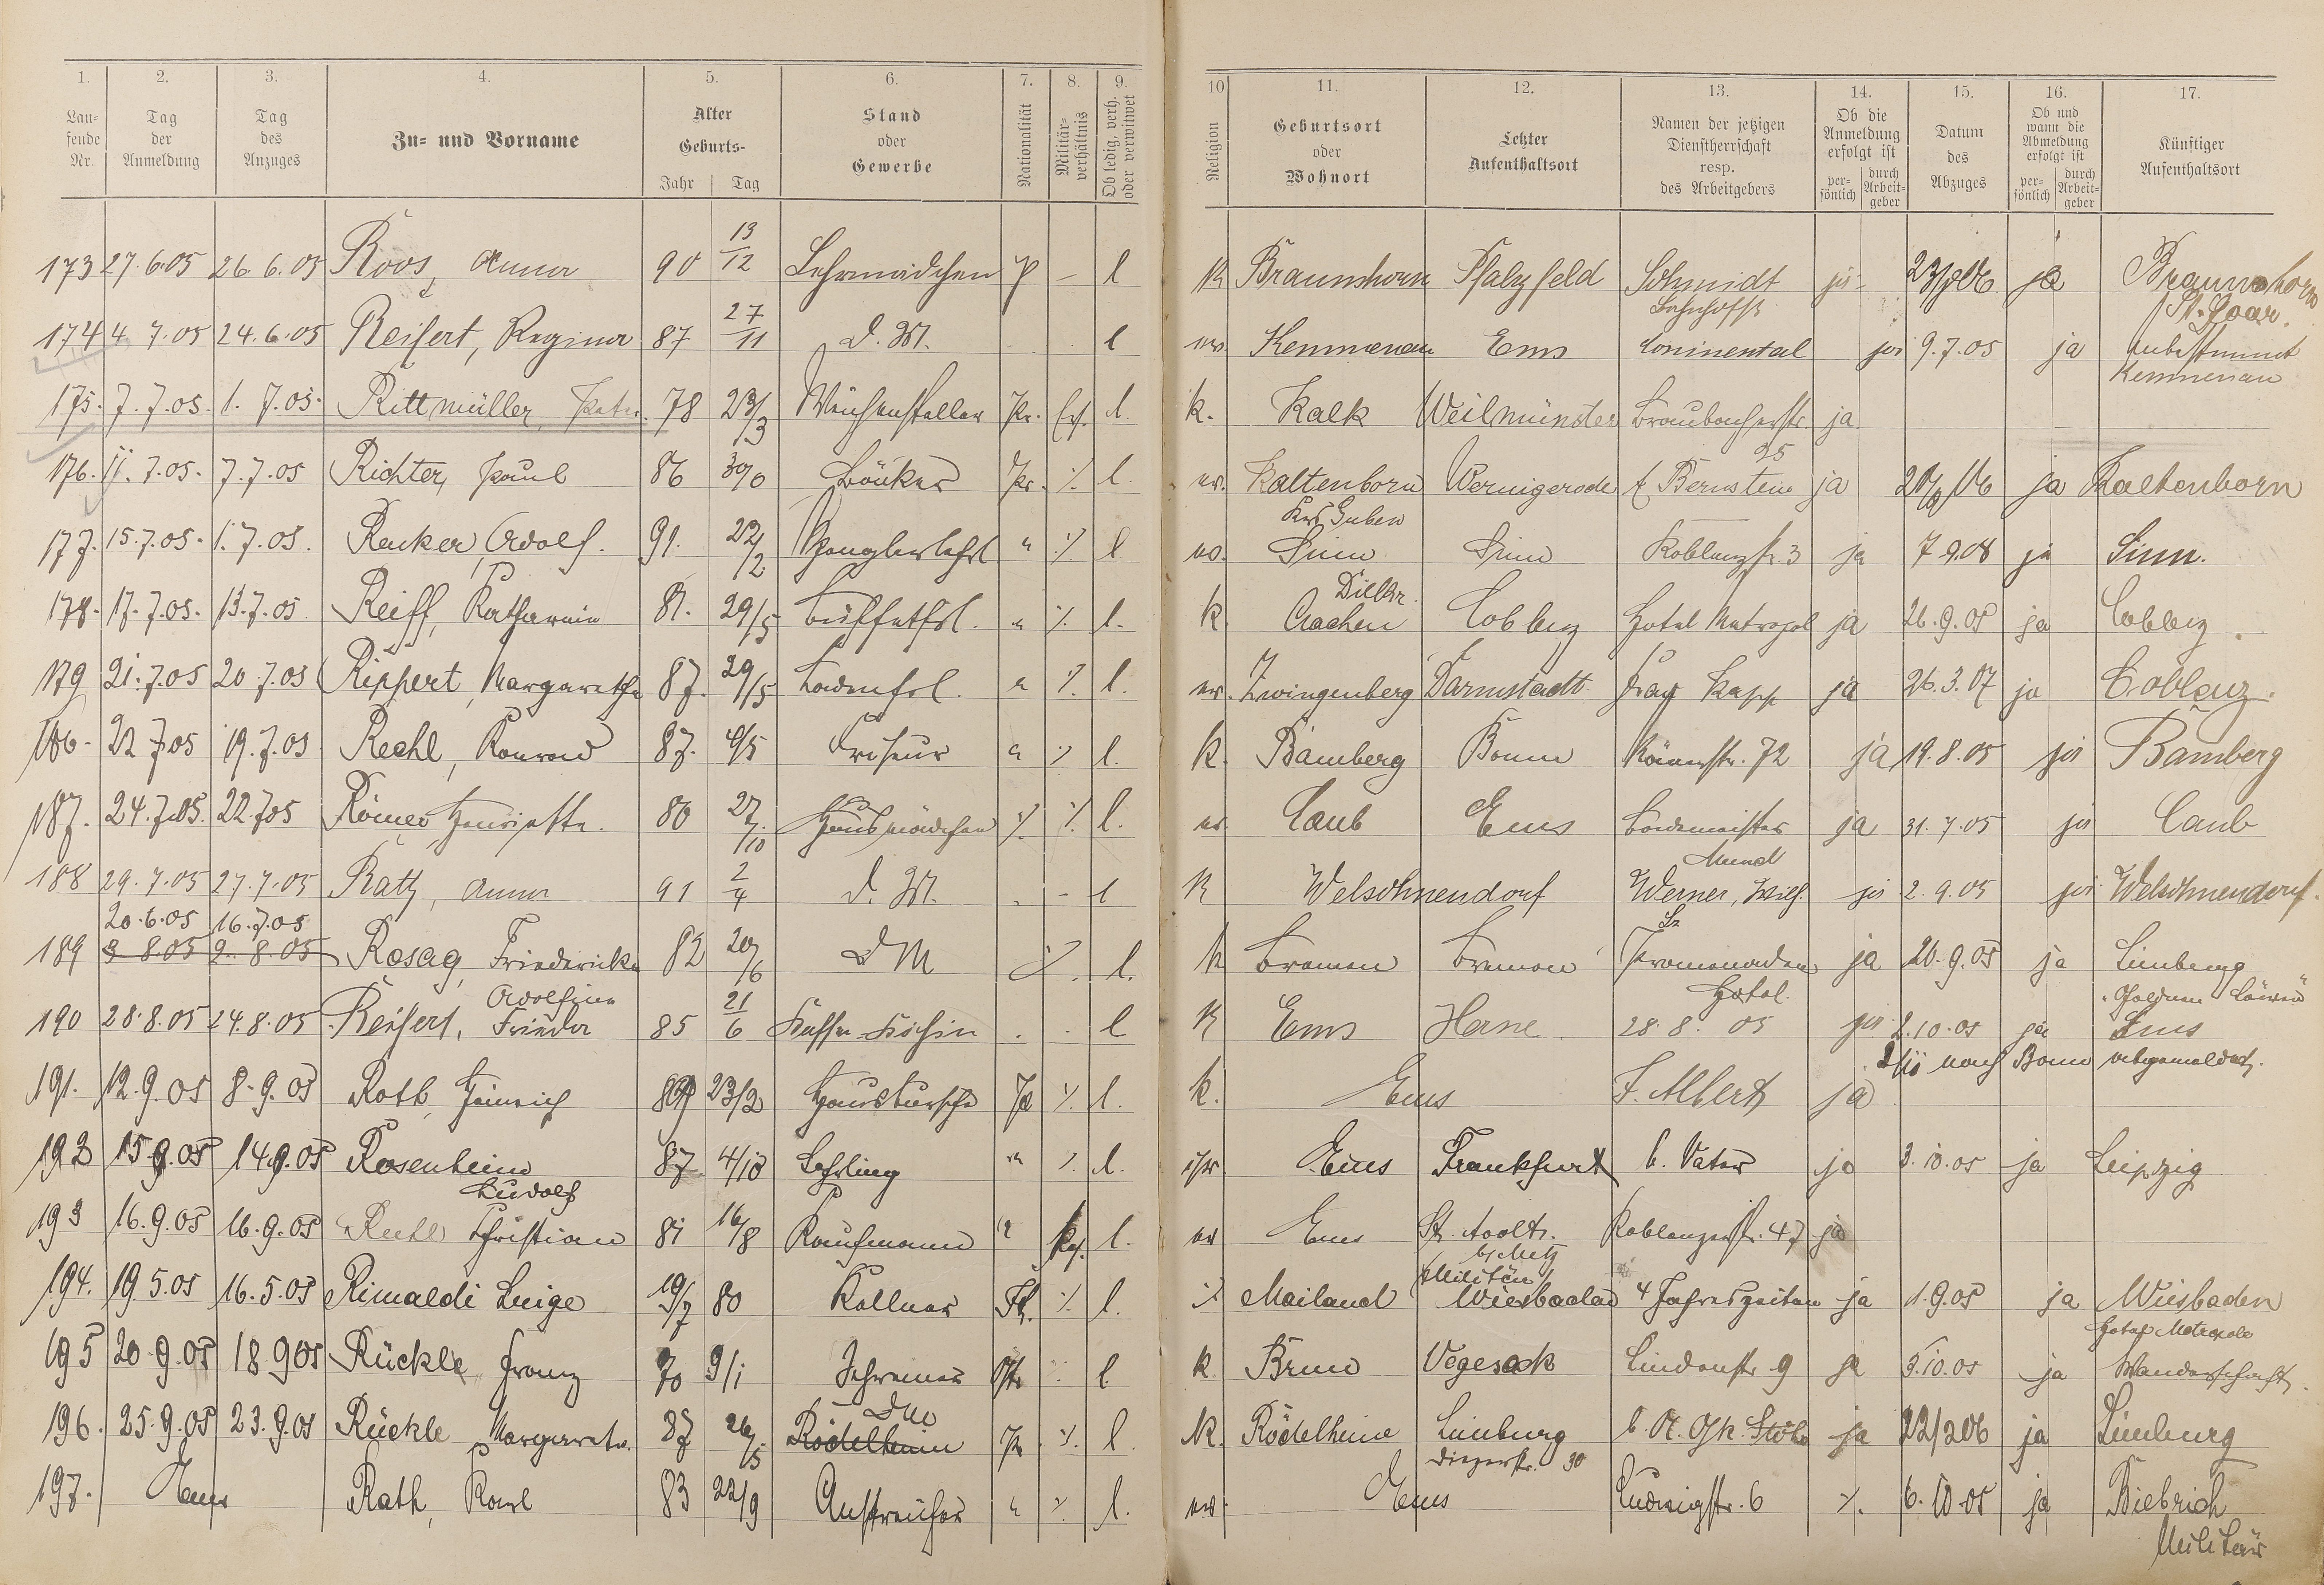 1. 2. 3. 4. 5. 6. 7. 8. 9. 10 11. 12. 13. 14. 15. 16. 17.
Laufende Nr.
Tag der Anmeldung
Tag des Anzuges
Zu- und Vorname
Alter
Geburts-
Jahr Tag
Stand oder Gewerbe
Nationalität
Militärverhältnis
Ob ledig, verh. oder verwitwet
Religion
Geburtsort oder Wohnort
Letzter Aufenthaltsort
Namen der jetzigen Dienstherrschaft resp. des Arbeitgebers
Ob die Anmeldung erfolgt ist
persönlich durch Arbeitgeber
Datum des Abzuges
Ob und wann die Abmeldung erfolgt ist
persönlich durch Arbeitgeber
Künftiger Aufenthaltsort
173 27.6.05 26.6.05 Roos, Anna 90 13/12 Lehrmädchen P - l K Braunshorn Pfalzfeld Schmidt Bahnhofstr ja ja Braunshorn St. Goar.
174 4 7.05 24.6.05 Reifert, Regina 87 27/11 D. M. l ev. Kemmenau Ems Coninental ja 9.7.05 ja unbestimmt Kemmenau
175. 7.7.05. 1.7.05. Rittmüller, Peter 78 23/3 Weichensteller Pr. Ers. l. k. Kalk Weilmünster Braubacherstr. 25 ja.
176. 11.7.05. 7.7.05 Richter, Paul 86 Bäcker Pr. ⁒ l. ev. Kaltenborn Krs Guben Wernigerode Bernstein ja ja Kaltenborn
177. 15.7.05. 1.7.05. Renker, Adolf. 91. 22/2 Spenglerlehrl. " ⁒ l ev. Sinn Dillkr. Sinn Koblenzstr. 3 ja 7.9.08 ja Sinn.
178. 17.7.05. 13.7.05 Reiff, Katharina 81. 29/5 Büffetfrl. " ⁒ l. k. Aachen Coblenz Hotel Metropol ja 26.9.05 ja Coblenz.
179 21.7.05 20.7.05 Rippert, Margarethe 87. 29/5 Ladenfrl. " ⁒ l. ev. Zwingenberg Darmstadt Frau Kapp ja 26.3.07 ja Coblenz.
186. 22 7.05 19.7.05 Rechl, Konrad 87. Friseur " ⁒ l. k. Bamberg Bonn Römerstr. 72 ja 19.8.05 ja Bamberg
187. 24.7.05. 22.7.05 Römer, Henriette. 80 27/10 Hausmädchen ⁒ ⁒ l. ev. Caub Ems Bademeister Mund ja 31.7.05 ja Caub
188 29.7.05 27.7.05 Ratz, Anna 91 2/4 D. M. - l K Welschnendorf Werner, Wilh. ja 2.9.05 ja Welschnendorf.
20.6.05 16.7.05
189 3 8.05 2. 8.05 Rosag, Friedericke Adolfine 82 20/6 D M ⁒ l. k Bremen Bremen Promenaden Hotel. ja 20.9.05 ja Limburg Goldnen Löwen
190 28.8.05 24.8.05 Reifert, Frieda 85 21/6 Kaffee-Köchin l K Ems Herne 28.8.05 ja 2.10.05 ja Ems
191. 12.9.05 8.9.05 Roth, Heinrich 23/2 Hausbursche Pr ⁒ l. k. Ems F. Albert ja nach Bonn abgemeldet.
192 15.9.05 14.9.05 Rosenheim Rudolf 87 4/10 Lehrling " ⁒ l. isr Ems Frankfurt b. Vater ja 3.10.05 ja Leipzig
193 16.9.05 16.9.05 Ruhl Christian 81 16/8 Kaufmann " l. ev Ems St. Avold. b/ Metz Militär Koblenzerstr. 47 ja
194. 19.5.05 16.5.05 Rimaldi Luige 19/7 80 Kellner It. ⁒ l. ⁒ Mailand Wiesbaden 4 Jahreszeiten ja 1.9.05 ja Wiesbaden Hotel Metropole
195 20.9.05 18.9.05 Rückle, Franz 70 9/1 Schreiner Östr ⁒ l k Brünn Vegesack Lindenstr. 9 ja 5.10.05 ja Wanderschaft.
196. 25.9.05 23.9.05 Rückle Margarete. 87 26/5 Rödelheim DM Pr ⁒ l. k. Rödelheim Limburg Diezerstr. 30 ja 22/2 06 ja Limburg
197. Ems Rath, Karl 83 22/9 Anstreicher " ⁒ l. ev. Ems Ludwigstr. 6 ⁒. 6.10.05 ja Biebrich Militär